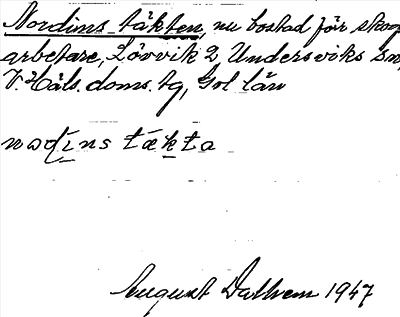 Nordins täkten, nu bostad för skogs
arbetare, Lörvik 2, Undersviks sn,
V. Häls. doms. tg, Gvl län
noɖi̠ns tæk̠ta
August Dalhem 1947